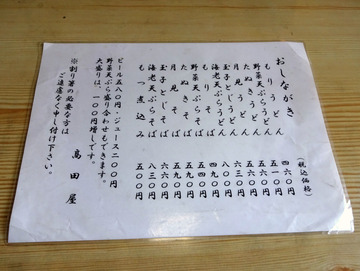 おしながき (税込価格)
もりうどん 四六〇円
野菜天ぷらうどん 五一〇円
たぬきうどん 五六〇円
月見うどん 五六〇円
玉子とじうどん 六三〇円
海老天ぷらうどん 八〇〇円
もりそば 四九〇円
野菜天ぷらそば 五四〇円
たぬきそば 五九〇円
月見そば 五九〇円
玉子とじそば
海老天ぷらそば 八三〇円
もつ煮込み 五〇〇円
ビール五八〇円・ジュース二〇〇円
野菜天ぷら盛り合わせもできます。
大盛りは、一〇〇円増しです。
※割り箸の必要な方は
ご遠慮なく申し付け下さい。
高田屋